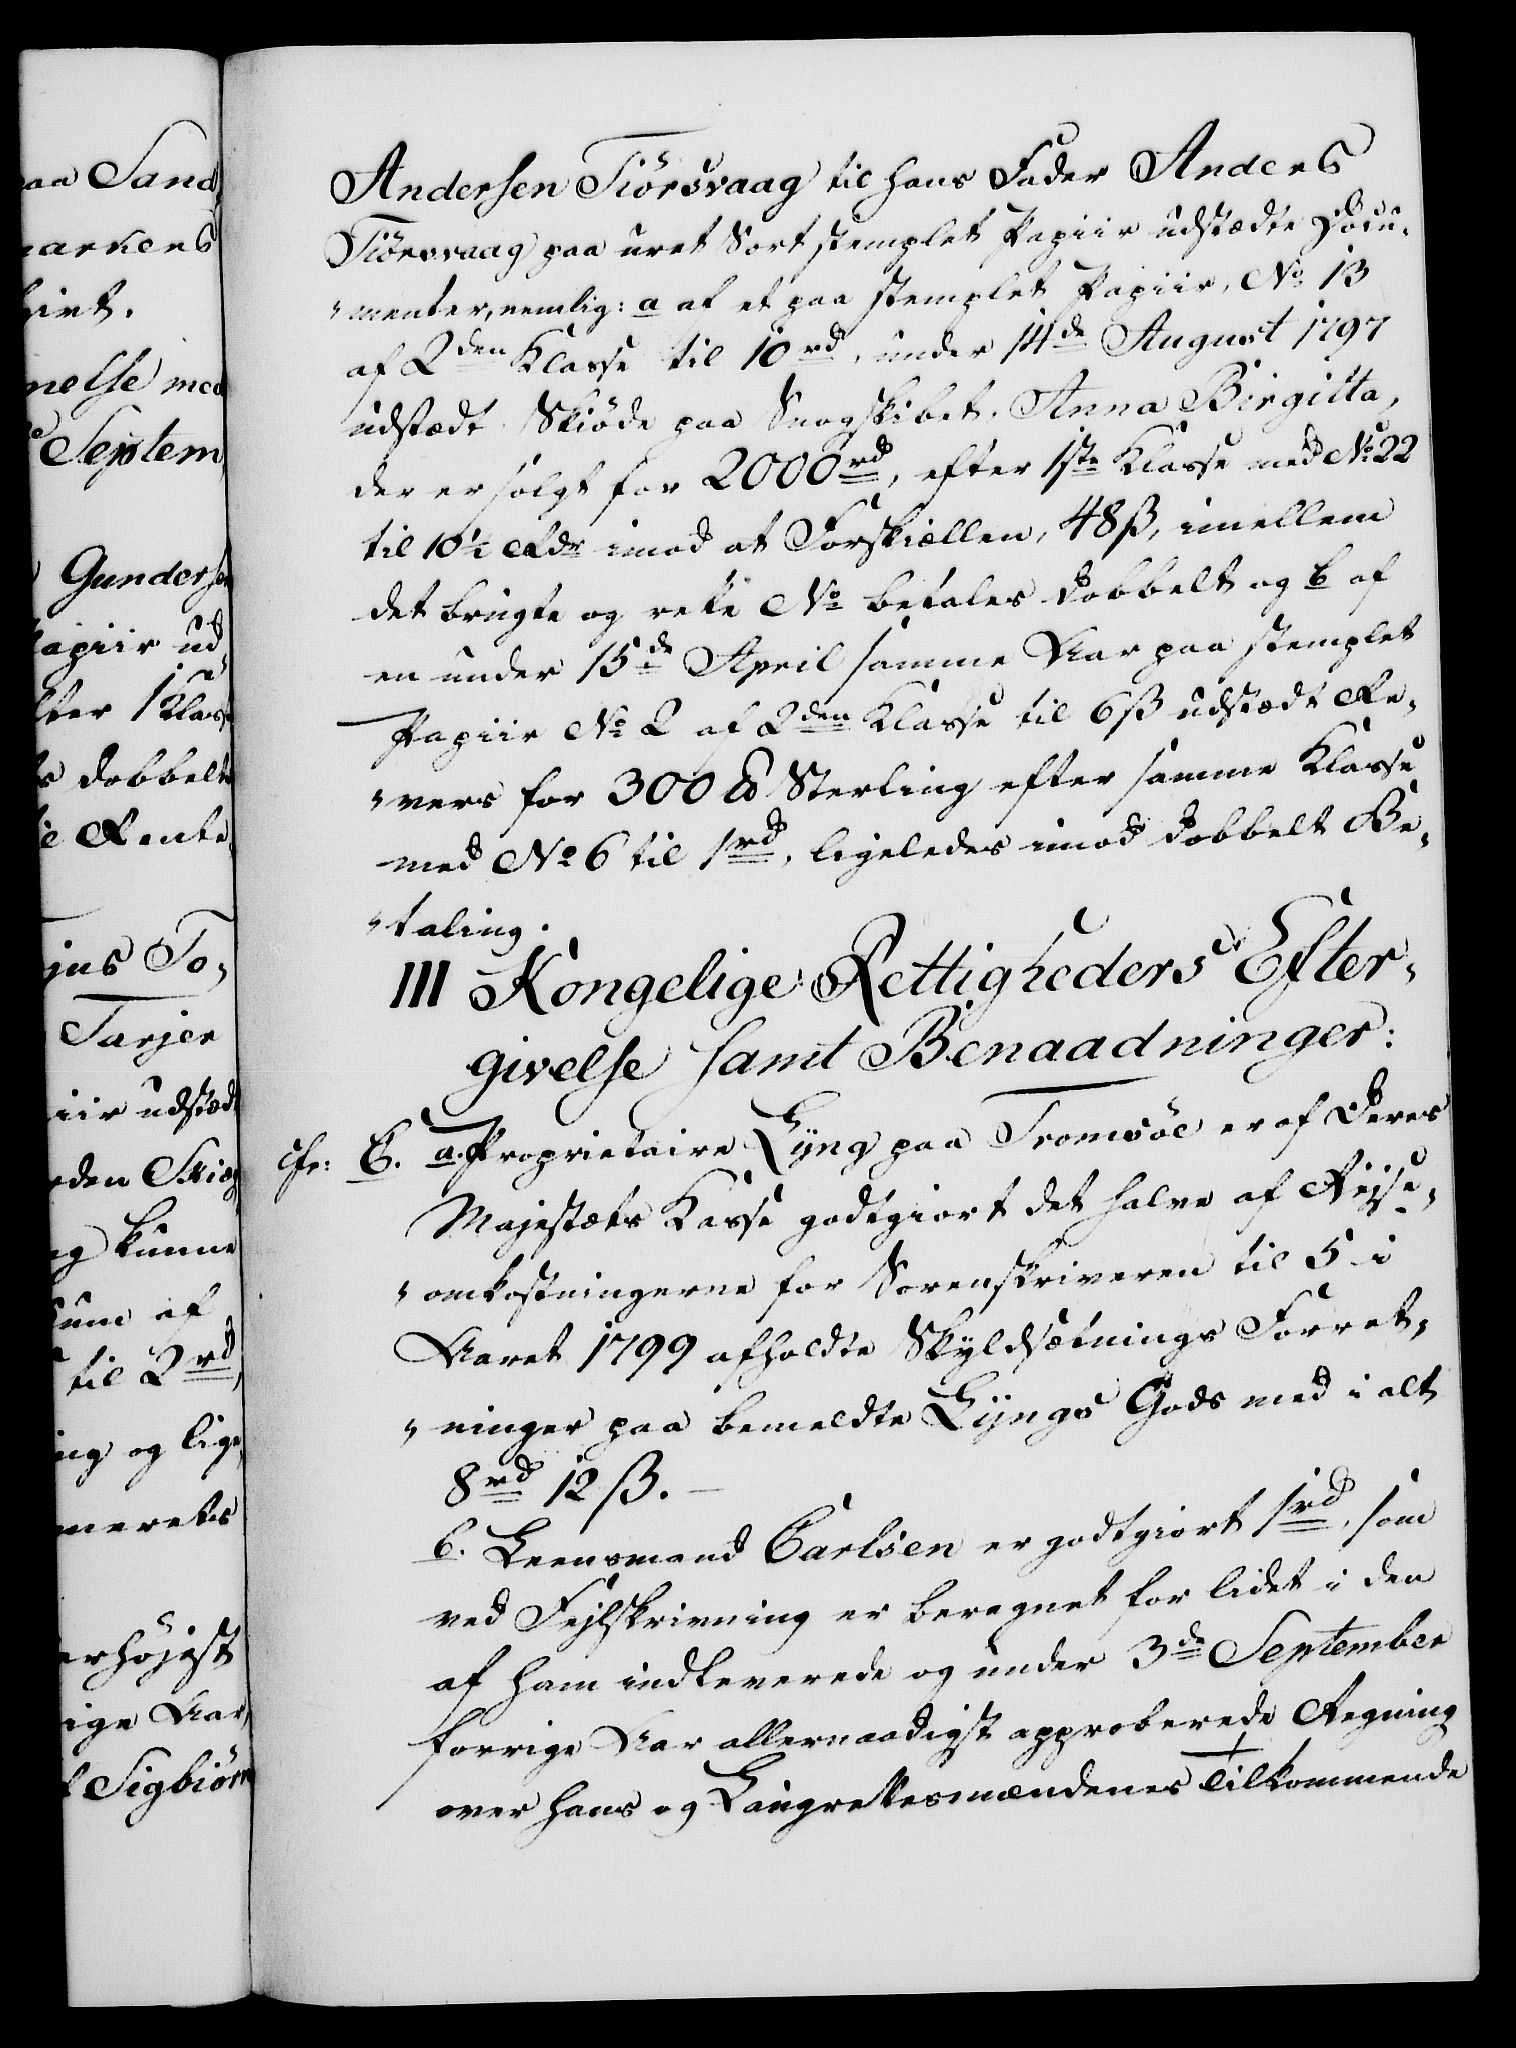 aa Sand
arkens
hirt.
melse med
Septem
Gundersen
apiir ud
fter 1 Klasse
s dobbelt
Rente
jus To,
Tarjer
iir udstædt
den Skiøg
g kunne
sum af
til 2 rd,
ing og lige
merets
erhöjst
ige Aar
Sigbiörn
Andersen Tiörsvaag til hans Fader Anders
Tiörsvaag paa uret Sort stemplet Papiir udstædte Docu-
menter, nemlig: a af et paa stemplet Papiir, No 13
af 2den Klasse til 10 rd, under 14de August 1797
udstædt Skiöde paa Snagskibet. Anna Birgitta,
der er solgt for 2000 rd, efter 1ste Klasse med No 22
til 10½ Rdr imod at Forskiællen, 48 ß, imellem
det brugte og rette No betales dobbelt og b af
en under 15de April samme Aar paa stemplet
Papiir No 2 af 2den Klasse til 6 ß udstædt Re-
vers for 300 ℔ Sterling efter samme Klasse
med No 6 til 1 rd, ligeledes imod dobbelt Be-
taling.
III Kongelige Rettigheders Efter-
givelse samt Benaadninger:
cfr: C. a. Proprietaire Lyng paa Tromsöe er af Deres
Majestæts Kasse godtgiort det halve af Rejse-
omkostningerne for Sorenskriveren til 5 i
Aaret 1799 afholdte Skyldsætnings Forret-
ninger paa bemeldte Lyngs Gods med i alt
8 rd 12 ß. –
b. Leensmand Carlsen er godtgiort 1 rd, som
ved Fejlskrivning er beregnet for lidet i den
af ham indleverede og under 3de September
forrige Aar allernaadigst approberede Regning
over hans og Laugrettesmændenes Tilkommende